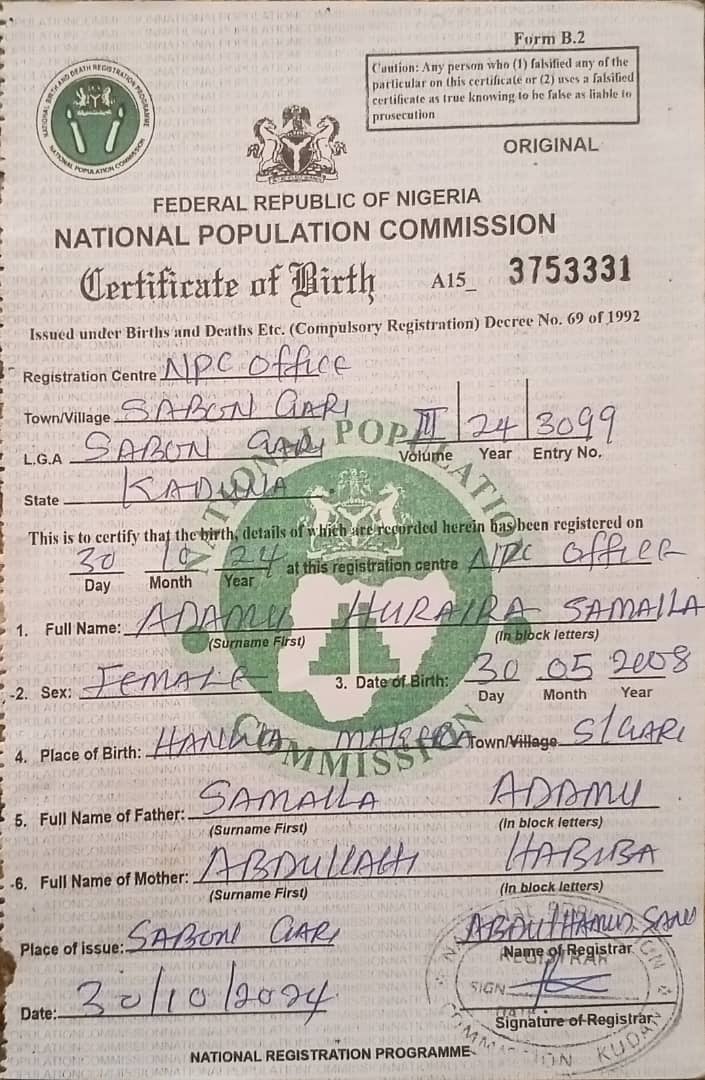 Form B.2
Caution: Any person who (1) falsified any of the
particular on this certificate or (2) uses a falsified
certificate as true knowing to be false as liable to
prosecution
NATIONAL BIRTH AND DEATH REGISTRATION PROGRAMME
NATIONAL POPULATION COMMISSION
ORIGINAL
FEDERAL REPUBLIC OF NIGERIA
NATIONAL POPULATION COMMISSION
Certificate of Birth A15_ 3753331
Issued under Births and Deaths Etc. (Compulsory Registration) Decree No. 69 of 1992
Registration Centre NPC OFFICE
Town/Village SABON GARI
III 24 3099
L.G.A SABON GARI Volume Year Entry No.
State KADUNA
NATIONAL POPULATION COMMISSION
This is to certify that the birth, details of which are recorded herein has been registered on
30 10 24 at this registration centre NPC OFFICE
Day Month Year
1. Full Name: ADAMU HURAIRA SAMAILA
(Surname First) (In block letters)
2. Sex: FEMALE 3. Date of Birth: 30 05 2008
Day Month Year
4. Place of Birth: HANWA Town/Village S/GARI
5. Full Name of Father: SAMAILA ADAMU
(Surname First) (In block letters)
6. Full Name of Mother: ABDULLAHI HABIBA
(Surname First) (In block letters)
Place of issue: SABON GARI ABDULHAMID SANI
Name of Registrar
REGISTRAR
SIGN
Date: 30/10/2024
Signature of Registrar
KUDAN
NATIONAL REGISTRATION PROGRAMME